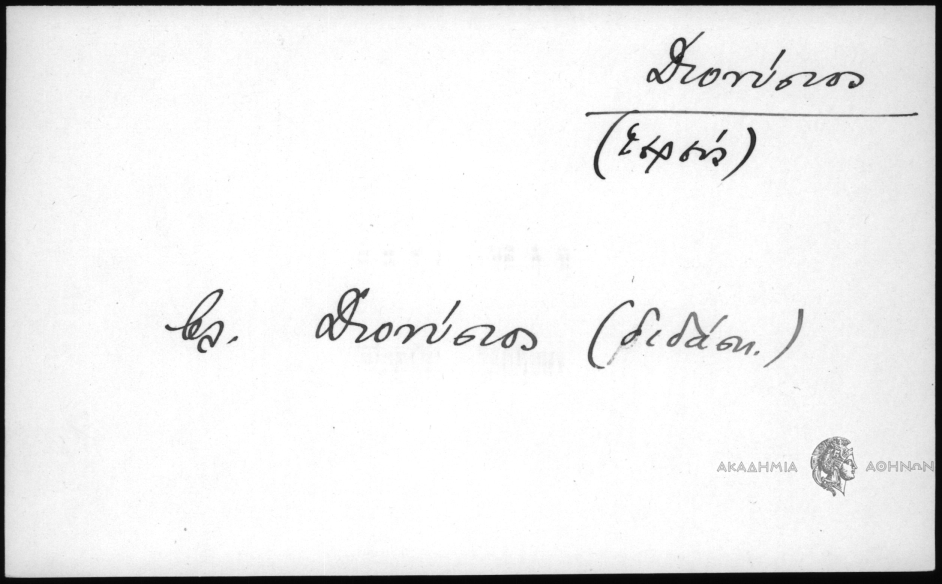 Διονύσιος
(ἱερεύς)
βλ. Διονύσιος (διδάσκ.)
ΑΚΑΔΗΜΙΑ ΑΘΗΝΩΝ